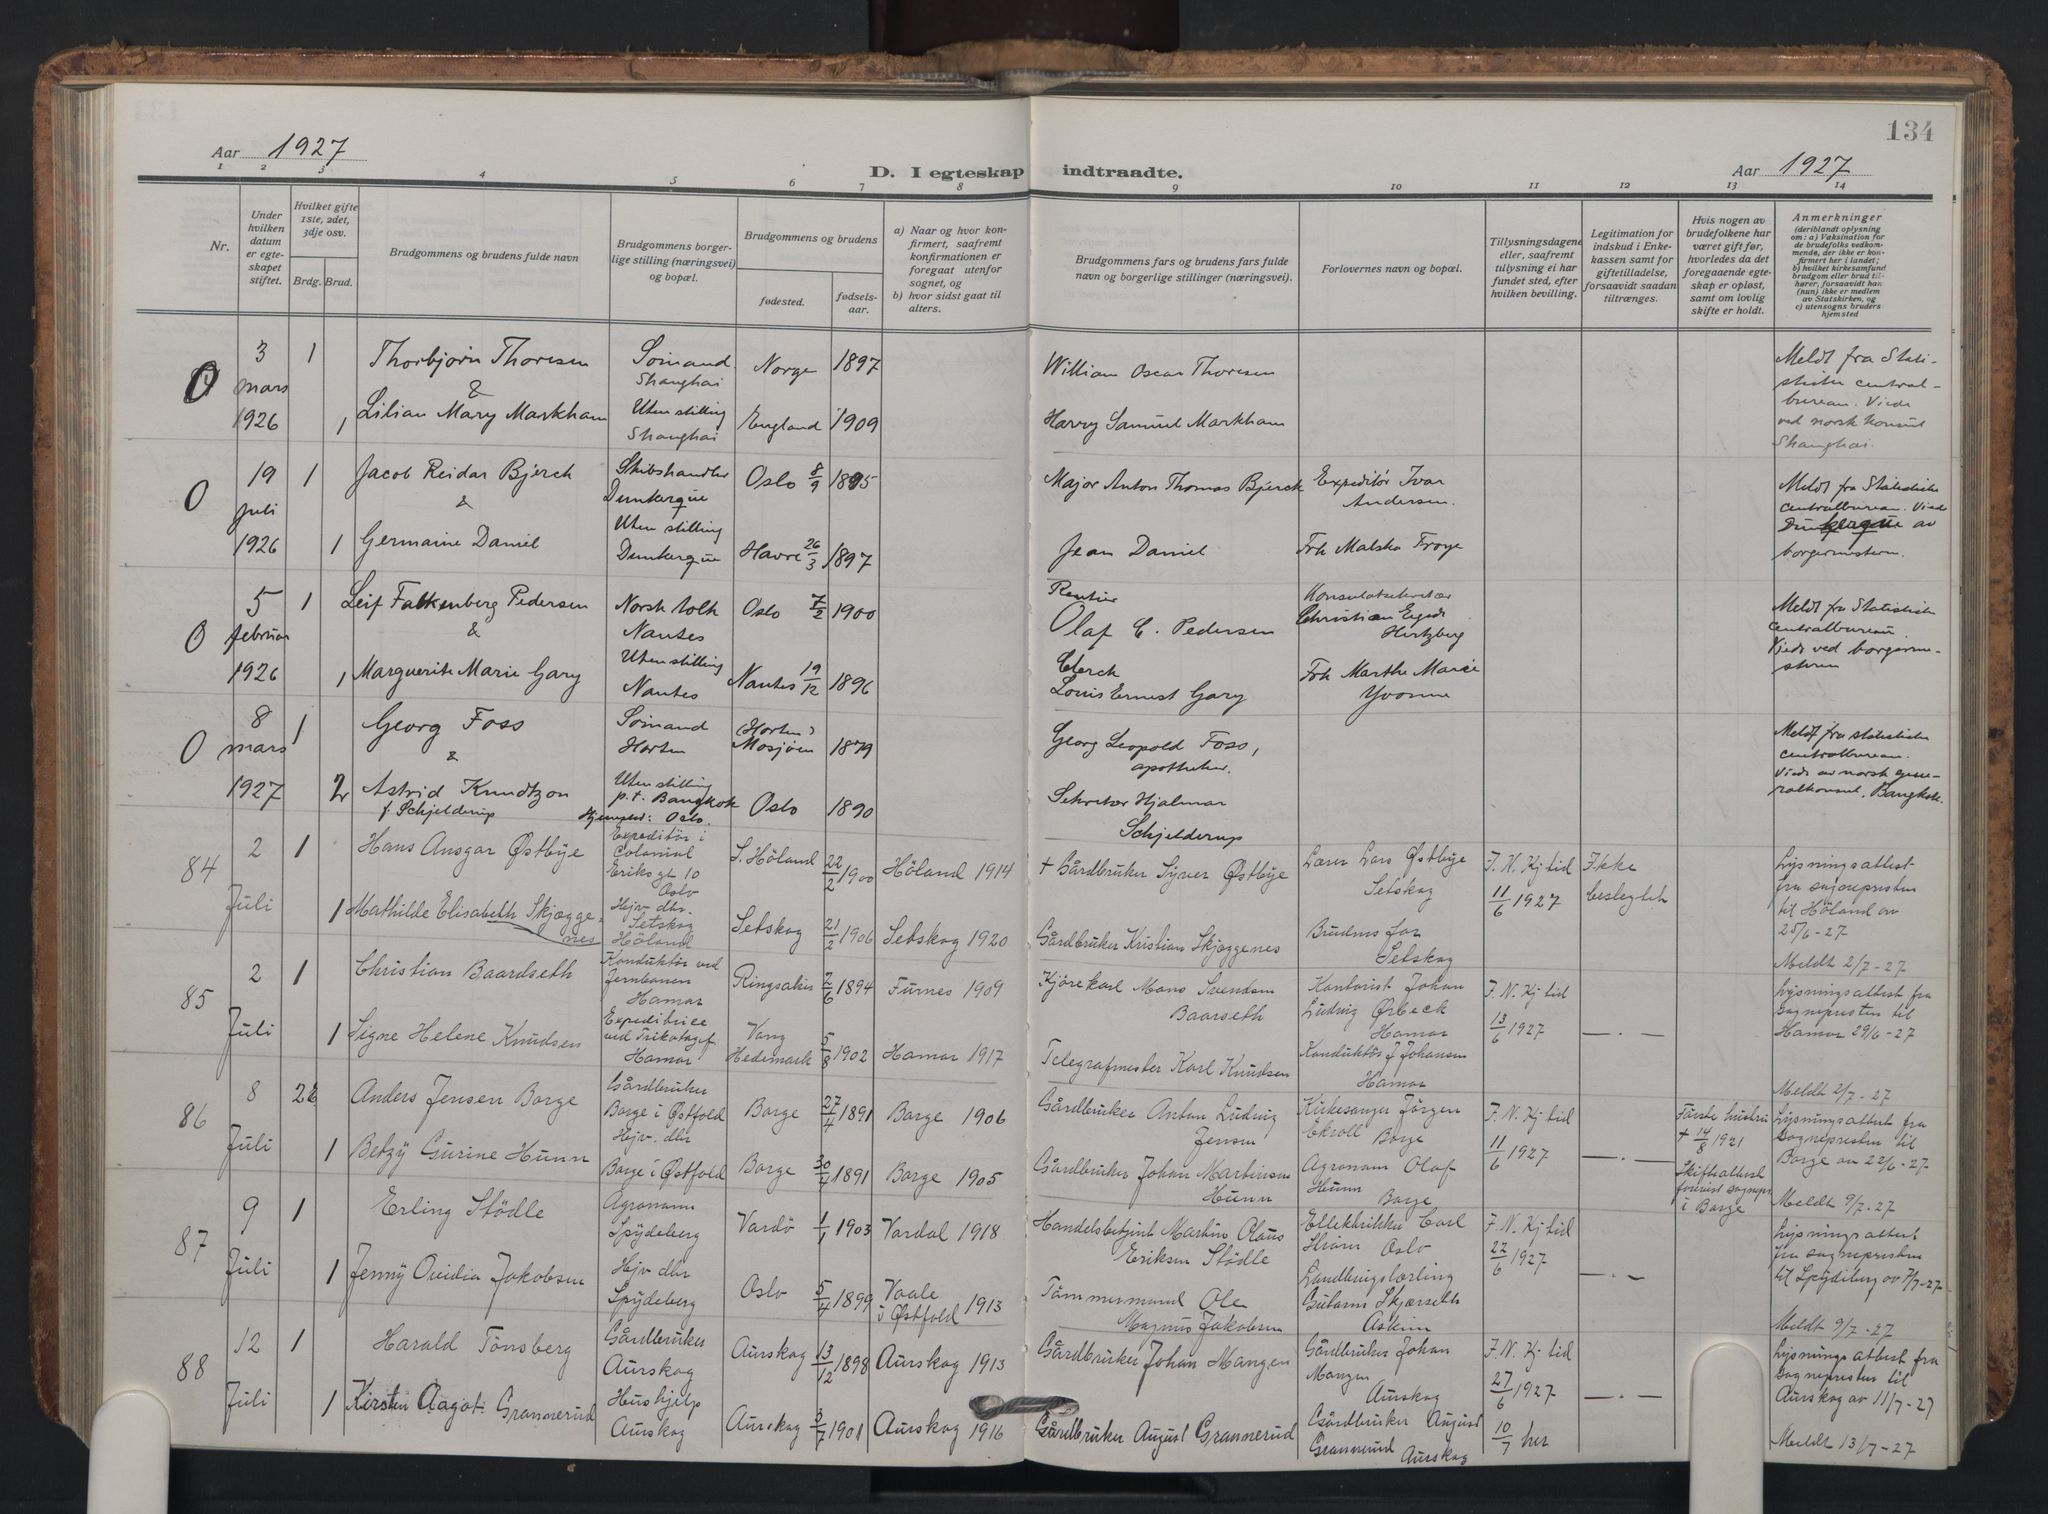 134
Aar 1927
D. I egteskap indtraadte.
Aar 1927
1 2 3 4 5 6 7 8 9 10 11 12 13 14
Nr.
Under hvilken datum er egteskapet stiftet.
Hvilket gifte 1ste, 2det, 3dje osv.
Brdg. Brud.
Brudgommens og brudens fulde navn
Brudgommens borgerlige stilling (næringsvei) og bopæl.
Brudgommens og brudens
fødested.
fødselsaar.
a) Naar og hvor konfirmert, saafremt konfirmationen er foregaat utenfor sognet, og
b) hvor sidst gaat til alters.
Brudgommens fars og brudens fars fulde navn og borgerlige stillinger (næringsvei).
Forlovernes navn og bopæl.
Tillysningsdagene eller, saafremt tillysning ei har fundet sted, efter hvilken bevilling.
Legitimation for indskud i Enkekassen samt for giftetilladelse, forsaavidt saadan tiltrænges.
Hvis nogen av brudefolkene har været gift før, hvorledes da det foregaaende egteskap er opløst, samt om lovlig skifte er holdt.
Anmerkninger
(deriblandt oplysning om: a) Vaksination for de brudefolks vedkommende, der ikke er konfirmert her i landet; b) hvilket kirkesamfund brudgom eller brud tilhører, forsaavidt han (hun) ikke er medlem av Statskirken, og c) utensogns bruders hjemsted
O 3 mars 1926
1 Thorbjørn Thoresen Sømand Shanghai Norge 1897 William Oscar Thoresen
&
1 Lilian Mary Markham Uten stilling Shanghai England 1909 Harry Samuel Markham
Meldt fra Statistiske centralbureau. Viede ved norsk konsul Shanghai.
O 19 juli 1926
1 Jacob Reidar Bjerck Skibshandler Dunkerque Oslo 8/9 1895 Major Anton Thomas Bjerck Expeditør Ivar Andersen.
&
1 Germaine Daniel Uten stilling Dunkerque Havre 26/3 1897 Jean Daniel Frk Malska Froye
Meldt fra Statistiske centralbureau. Viede Dunkerque av borgermesteren.
O 5 februar 1926
1 Leif Falkenberg Pedersen Norsk tolk Nantes Oslo 7/2 1900 Rentier Olaf C. Pedersen Konsulatsekretær Christian Egede Hertzberg
&
1 Marguerite Marie Gary Uten stilling Nantes Nantes 19/12 1896 Clerck Louis Ernest Gary Frk Marthe Marie Yvonne
Meldt fra Statistiske centralbureau. Viede ved borgermesteren
O 8 mars 1927
1 Georg Foss Sømand Horten (Horten) Mosjøen 1879 Georg Leopold Foss, apotheker.
&
2 Astrid Knudtzon f. Schjelderup Uten stilling p.t. Bangkok Hjemsted: Oslo. Oslo 1890 Sekretær Hjalmar Schjelderup
Meldt fra statistiske centralbureau. Viede av norsk generalkonsul, Bangkok.
84 2 Juli
1 Hans Ansgar Østbye Expeditør i Colonial Eriksgt 10 Oslo S. Höland 22/2 1900 Höland 1914 + Gårdbruker Syver Østbye Lærer Lars Østbye Setskog F. N. Kj tid 11/6 1927 Ikke beslegtet
1 Mathilde Elisabeth Skjæggenes Hejv. dtr. Setskog Höland Setskog 21/2 1906 Setskog 1920 Gårdbruker Kristian Skjæggenes Brudens far Setskog
Lysningsattest fra sognepresten til Höland av 25/6-27
Meldt 2/7-27
85 2 Juli
1 Christian Baardseth Konduktör ved Jernbanen Hamar Ringsaker 2/6 1894 Furnes 1909 Kjörekarl Mons Svendsen Baarseth Kontorist Johan Ludvig Ørbeck Hamar F. N. Kj tid 13/6 1927 — . —
1 Signe Helene Knudsen Expeditrice ved Trikotagef Hamar Vang Hedemark 5/8 1902 Hamar 1917 Telegrafmester Karl Knudsen Konduktör J Johansen Hamar
Lysningsattest fra Sognepresten til Hamar 29/6-27
Meldt 2/7-27
86 8 Juli
2 Anders Jensen Borge Gårdbruker Borge i Østfold Borge 27/4 1891 Borge 1906 Gårdbruker Anton Ludvig Jensen Kirkesanger Jörgen Ekroll Borge F. N. Kj tid 11/6 1927 — . —
1 Betzy Gurine Hunn Hejv. dtr Borge i Østfold Borge 30/4 1891 Borge 1905 Gårdbruker Johan Martinsen Hunn Agronom Olaf Hunn Borge
Förste hustru + 14/8 1921 Skifteattest forevist sognepr. i Borge
Lysningsattest fra Sognepresten til Borge av 22/6-27
Meldt 9/7-27
87 9 Juli
1 Erling Stödle Agronom Spydeberg Vardö 1/1 1903 Vardal 1918 Handelsbetjent Martin Olaus Eriksen Stödle Carl Oslo F. N. Kj tid 22/6 1927 — . —
1 Jenny Ovidia Jakobsen Hejv dtr Spydeberg Oslo 5/4 1899 Vaale i Østfold 1913 Tömmermand Ole Magnus Jakobsen Skjærseth Askim
Lysningsattest fra sognepresten til Spydeberg av 7/7-27
Meldt 9/7-27
88 12 Juli
1 Harald Tönsberg Gårdbruker Aurskog Aurskog 13/12 1898 Aurskog 1913 Gårdbruker Johan Mangen Gårdbruker Johan Mangen Aurskog F. N. Kj tid 27/6 1927 — . —
1 Kirsten Aagot Grannerud Hushjelp Aurskog Aurskog 3/7 1901 Aurskog 1916 Gårdbruker August Grannerud Gårdbruker August Grannerud Aurskog 10/7 her
Lysningsattest fra Sognepresten til Aurskog av 11/7-27
Meldt 13/7-27